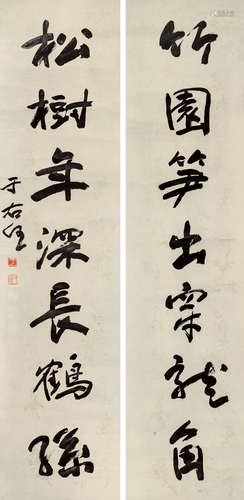 竹園筍出牢龍角
松樹年深長鶴孫
于右任